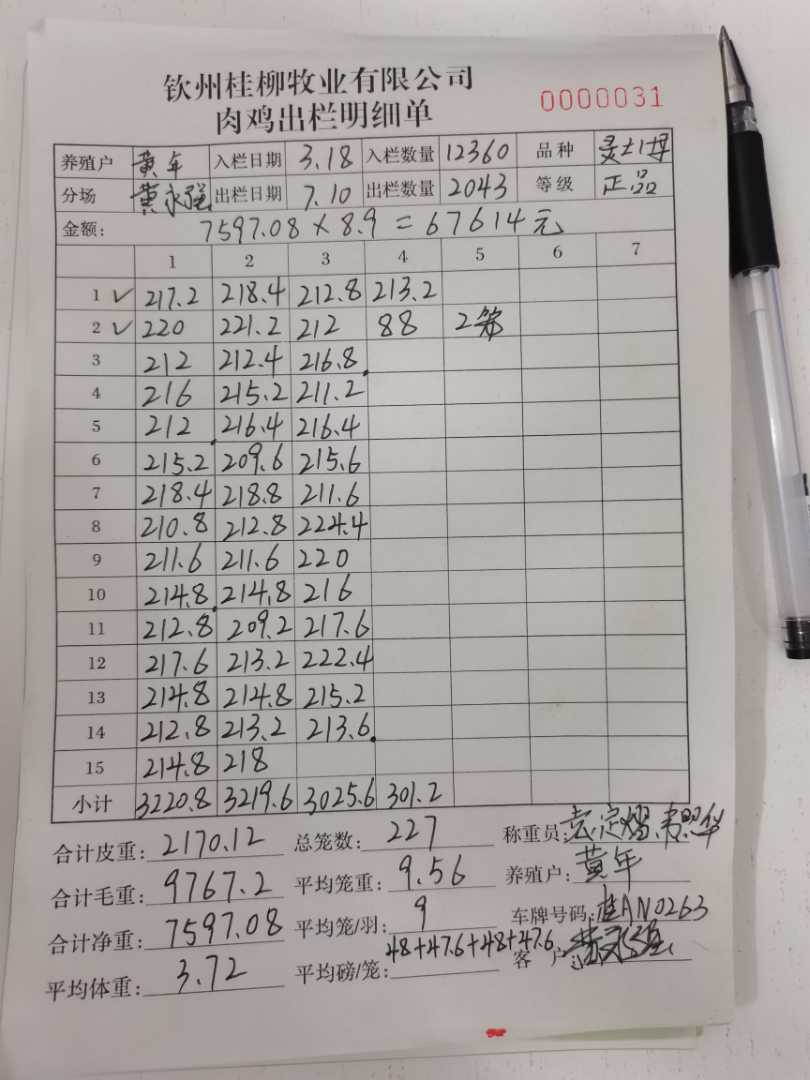 钦州桂柳牧业有限公司
肉鸡出栏明细单 0000031
养殖户 黄年 入栏日期 3.18 入栏数量 12360 品种 灵土1号
分场 黄永强 出栏日期 7.10 出栏数量 2043 等级 正品
金额: 7597.08 × 8.9 = 67614元
1 2 3 4 5 6 7
1 ✓ 217.2 218.4 212.8 213.2
2 ✓ 220 221.2 212 88 2笼
3 212 212.4 216.8
4 216 215.2 211.2
5 212 216.4 216.4
6 215.2 209.6 215.6
7 218.4 218.8 211.6
8 210.8 212.8 224.4
9 211.6 211.6 220
10 214.8 214.8 216
11 212.8 209.2 217.6
12 217.6 213.2 222.4
13 214.8 214.8 215.2
14 212.8 213.2 213.6
15 214.8 218
小计 3220.8 3219.6 3025.6 301.2
合计皮重: 2170.12 总笼数: 227 称重员:
合计毛重: 9767.2 平均笼重: 9.56 养殖户: 黄年
合计净重: 7597.08 平均笼/羽: 9 车牌号码: 桂AN0263
平均体重: 3.72 平均磅/笼: 48+47.6+48+47.6 客户: 黄永强